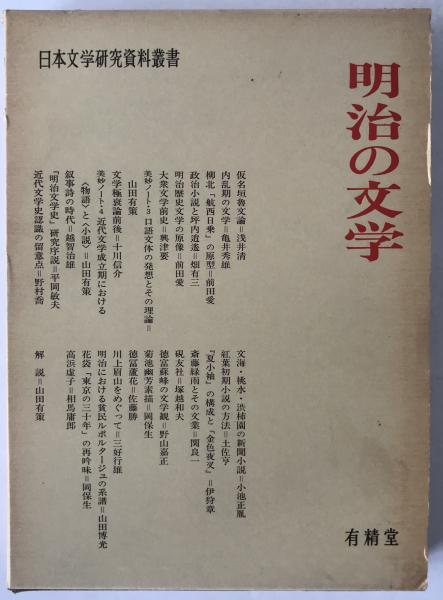 明治の文学
日本文学研究資料叢書
仮名垣魯文論=浅井清
内乱期の文学=亀井秀雄
柳北「航西日乗」の原型=前田愛
政治小説と坪内逍遙=畑有三
明治歴史文学の原像=前田愛
大衆文学前史=興津要
美妙ノート・3 口語文体の発想とその理論=
山田有策
文学極衰論前後=十川信介
美妙ノート・4 近代文学成立期における
〈物語〉と〈小説〉=山田有策
叙事詩の時代=越智治雄
『明治文学史』研究序説=平岡敏夫
近代文学史認識の留意点=野村喬
文海・桃水・渋柿園の新聞小説=小池正胤
紅葉初期小説の方法=土佐亨
『夏小袖』の構成と『金色夜叉』=伊狩章
斎藤緑雨とその文業=関良一
硯友社=塚越和夫
徳富蘇峰の文学観=野山嘉正
菊池幽芳素描=岡保生
徳冨蘆花=佐藤勝
川上眉山をめぐって=三好行雄
明治における貧民ルポルタージュの系譜=山田博光
花袋「東京の三十年」の再吟味=岡保生
高浜虚子=相馬庸郎
解説=山田有策
有精堂